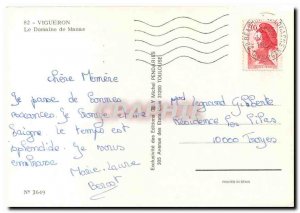 82 - VIGUERON
Le Domaine de Manas
Chère Mémère
Je passe de bonnes
vacances, je bronze et me
baigne le temps est
splendide. Je vous
embrasse
Marie-Laure
Exclusivité des Editions du VY Michel PENDARIES
305 Avenue des Etats-Unis 31200 TOULOUSE
Mad Legrand Gilberte
Résidence les Pilas
10000 Troyes
N° 2649